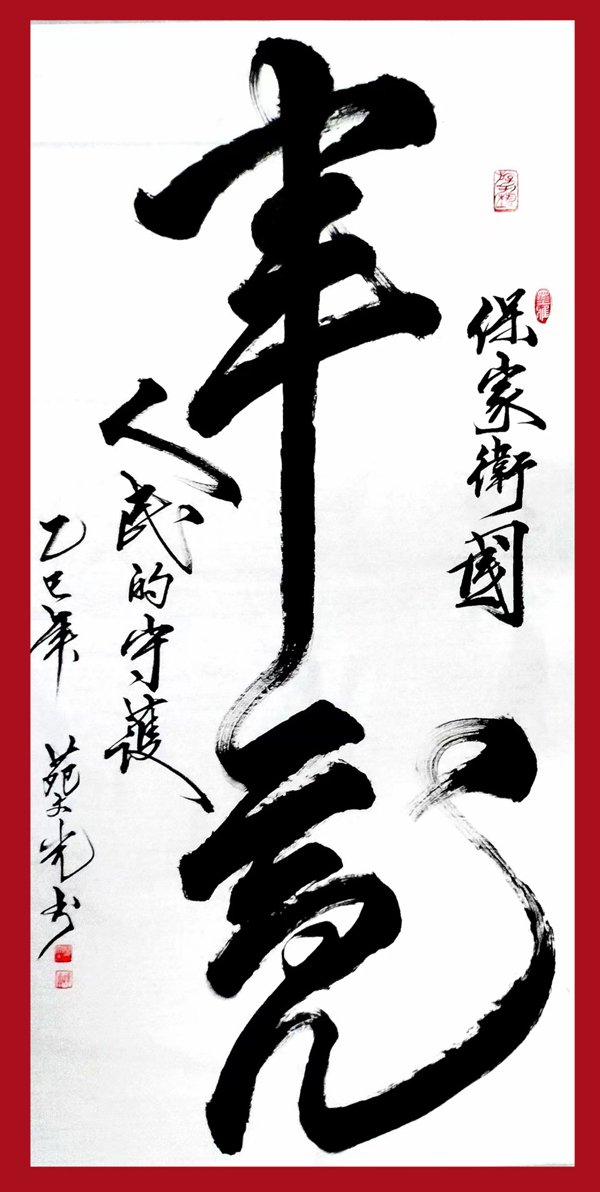 保家衛國
軍魂
人民的守護
乙巳年 苑文光书